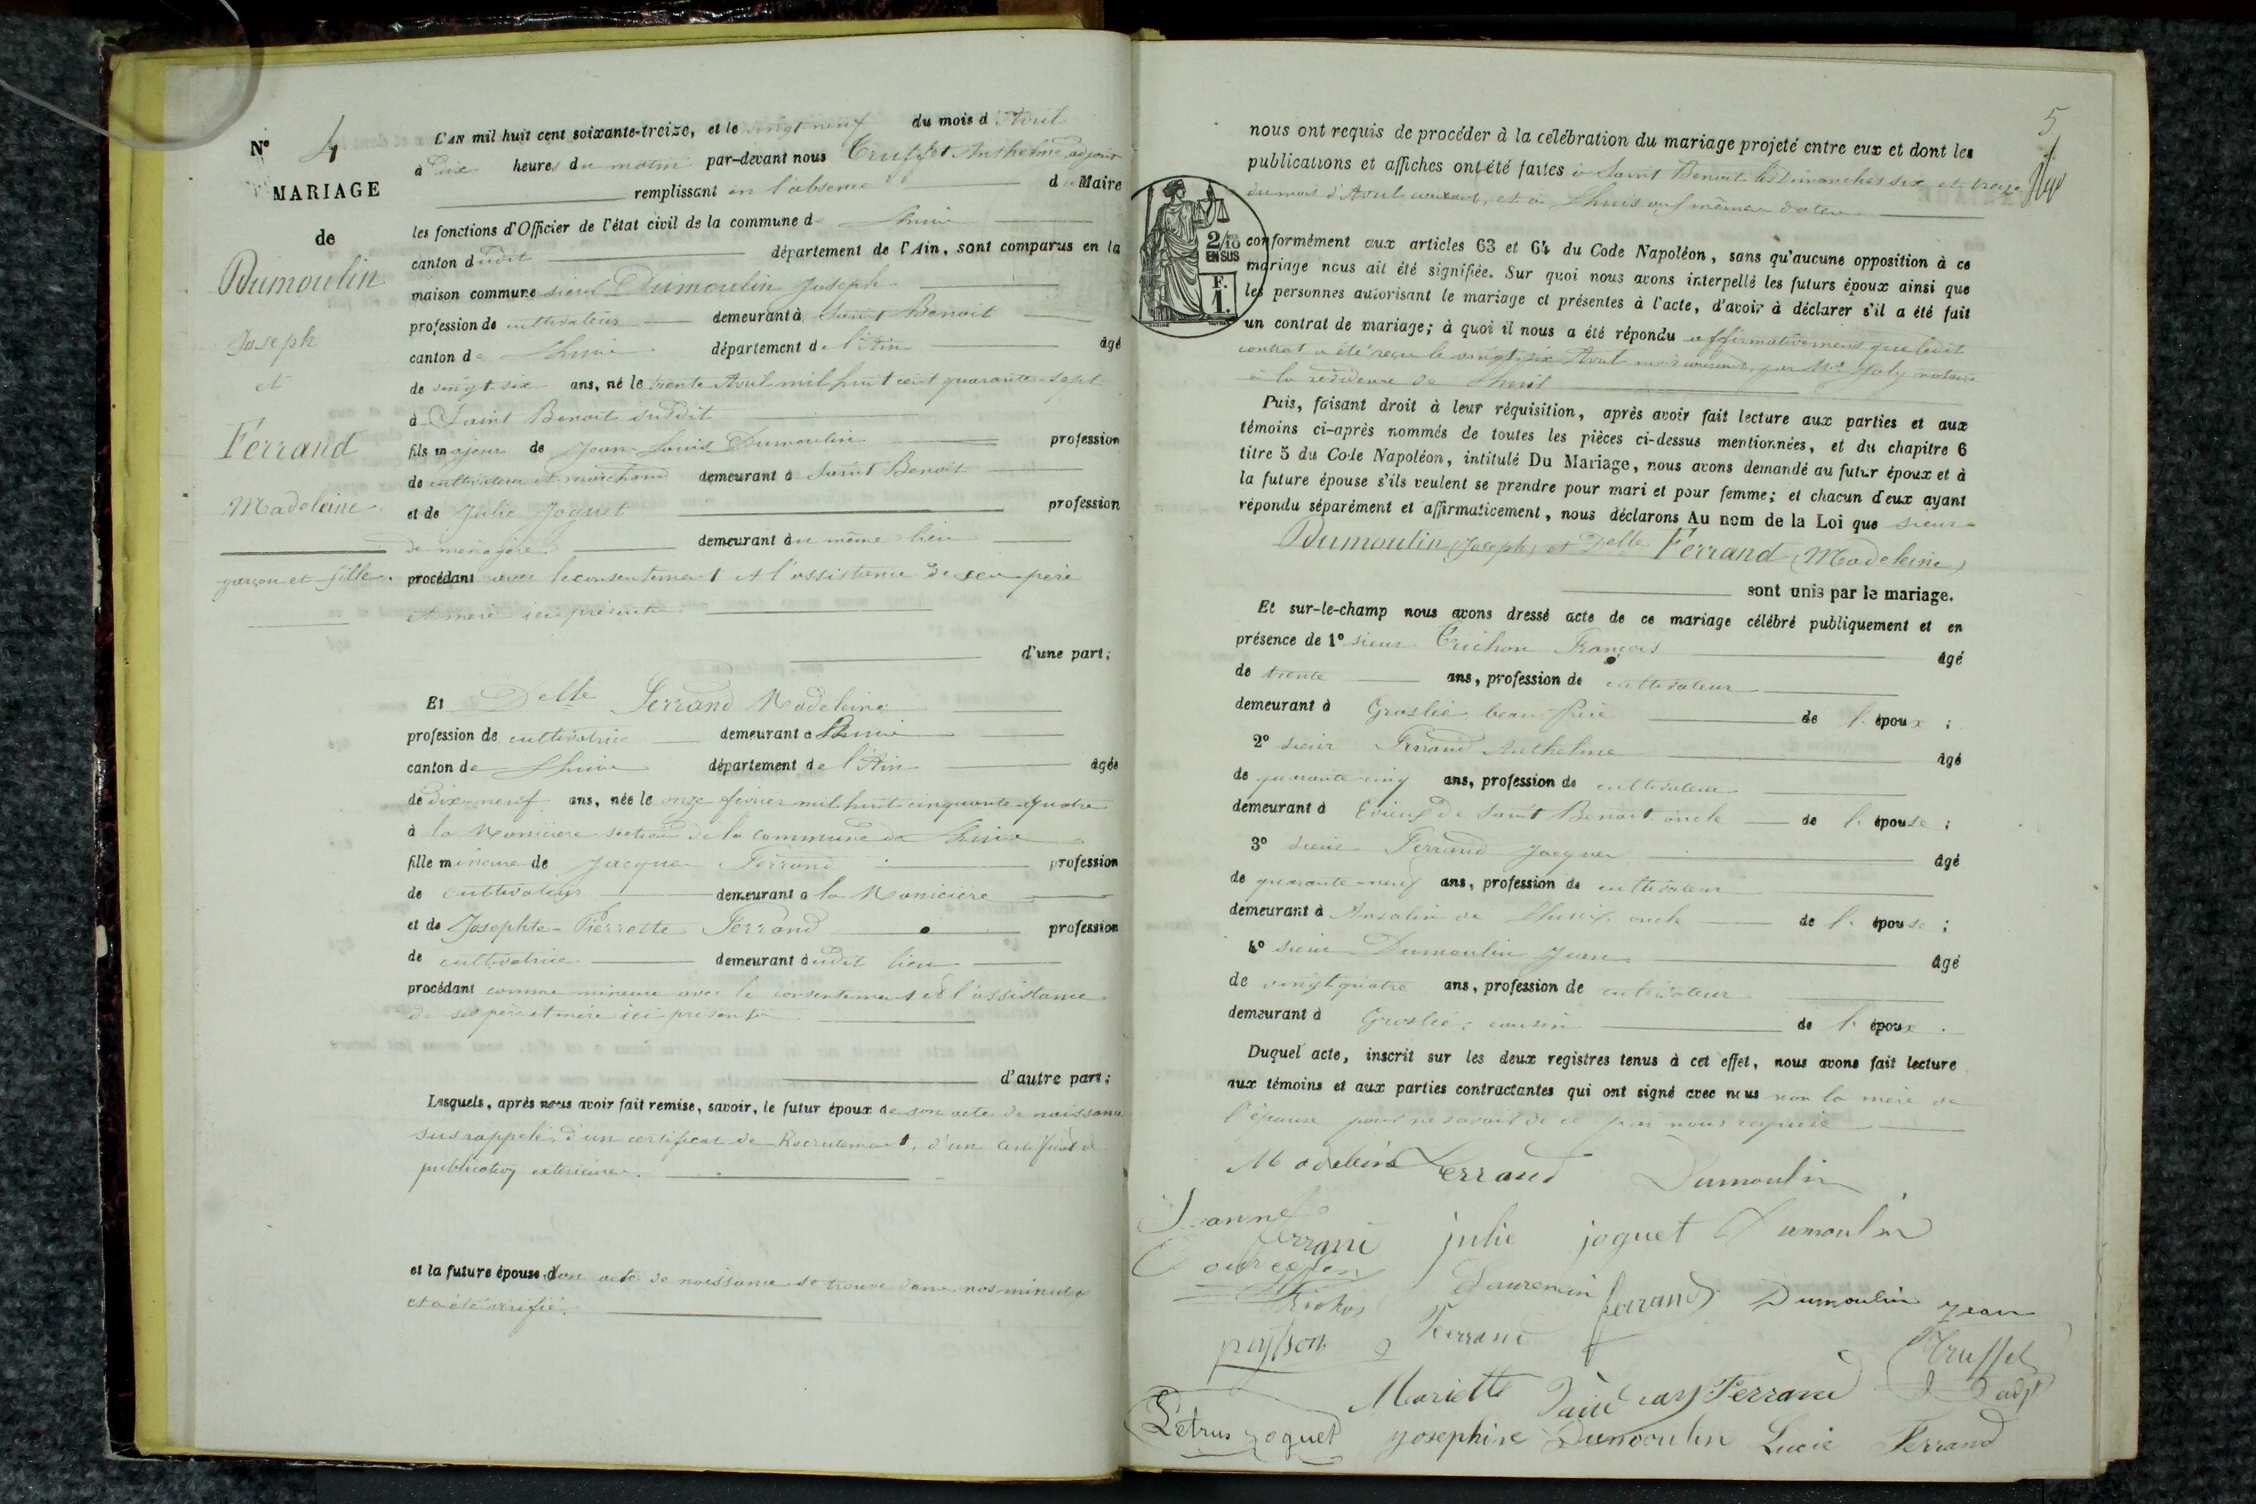 N° 4
MARIAGE
de
Dumoulin
Joseph
et
Ferrand
Madeleine
garçon et fille.
L'AN mil huit cent soixante-treize, et le vingt neuf du mois d'Avril
à dix heures du matin par-devant nous Truffet Anthelme adjoint
remplissant en l'absence du Maire
les fonctions d'Officier de l'état civil de la commune de Lhuis
canton dudit département de l'Ain, sont comparus en la
maison commune sieur Dumoulin Joseph
profession de cultivateur demeurant à Saint Benoit
canton de Lhuis département de l'Ain âgé
de vingt six ans, né le trente Avril mil huit cent quarante-sept
à Saint Benoit susdit
fils majeur de Jean Louis Dumoulin profession
de cultivateur et marchand demeurant à Saint Benoit
et de Julie Joguet profession
de ménagère demeurant au même lieu
procédant avec le consentement et l'assistance de son père
et mère ici présents
d'une part;
Et Delle Ferrand Madeleine
profession de cultivatrice demeurant à Lhuis
canton de Lhuis département de l'Ain âgée
de dix-neuf ans, née le onze février mil huit cinquante-quatre
à la Manicière section de la commune de Lhuis
fille mineure de Jacques Ferrand profession
de cultivateur demeurant à la Manicière
et de Josephte-Pierrette Ferrand profession
de cultivatrice demeurant audit lieu
procédant comme mineure avec le consentement et l'assistance
de ses père et mère ici présents
d'autre part;
Lesquels, après nous avoir fait remise, savoir, le futur époux de son acte de naissance
susrappelé, d'un certificat de Recrutement, d'un certificat de
publication extérieure.
et la future épouse dont acte de naissance se trouve dans nos minutes
et a été vérifié.
5
nous ont requis de procéder à la célébration du mariage projeté entre eux et dont les
publications et affiches ont été faites à Saint Benoit les dimanches six et treize
du mois d'Avril courant, et à Lhuis aux mêmes dates
2/10 EN SUS
F. 1.
conformément aux articles 63 et 64 du Code Napoléon, sans qu'aucune opposition à ce
mariage nous ait été signifiée. Sur quoi nous avons interpellé les futurs époux ainsi que
les personnes autorisant le mariage et présentes à l'acte, d'avoir à déclarer s'il a été fait
un contrat de mariage; à quoi il nous a été répondu affirmativement que ledit
contrat a été reçu le vingt-six Avril mois courant par Me Joly notaire
à la résidence de Lhuis
Puis, faisant droit à leur réquisition, après avoir fait lecture aux parties et aux
témoins ci-après nommés de toutes les pièces ci-dessus mentionnées, et du chapitre 6
titre 5 du Code Napoléon, intitulé Du Mariage, nous avons demandé au futur époux et à
la future épouse s'ils veulent se prendre pour mari et pour femme; et chacun d'eux ayant
répondu séparément et affirmativement, nous déclarons Au nom de la Loi que sieur
Dumoulin (Joseph) et Delle Ferrand (Madeleine)
sont unis par le mariage.
Et sur-le-champ nous avons dressé acte de ce mariage célébré publiquement et en
présence de 1° sieur Trichon François âgé
de trente ans, profession de cultivateur
demeurant à Groslée beau frère de l'époux;
2° sieur Ferrand Anthelme âgé
de quarante cinq ans, profession de cultivateur
demeurant à Evieux de Saint Benoit oncle de l'épouse;
3° sieur Ferrand Jacques âgé
de quarante-neuf ans, profession de cultivateur
demeurant à Ansolin de Lhuis, oncle de l'épouse;
4° sieur Dumoulin Jean âgé
de vingt quatre ans, profession de cultivateur
demeurant à Groslée, cousin de l'époux.
Duquel acte, inscrit sur les deux registres tenus à cet effet, nous avons fait lecture
aux témoins et aux parties contractantes qui ont signé avec nous non la mère de
l'épouse pour ne savoir de ce par nous requise
Madeleine Ferrand Dumoulin
Jeanne
Ferrand julie joguet Dumoulin
Laurencin ferrand Dumoulin Jean
peysson Ferrand
Truffet
adjt
Mariette Ferrand
Petrus joguet Josephine Dumoulin Lucie Ferrand